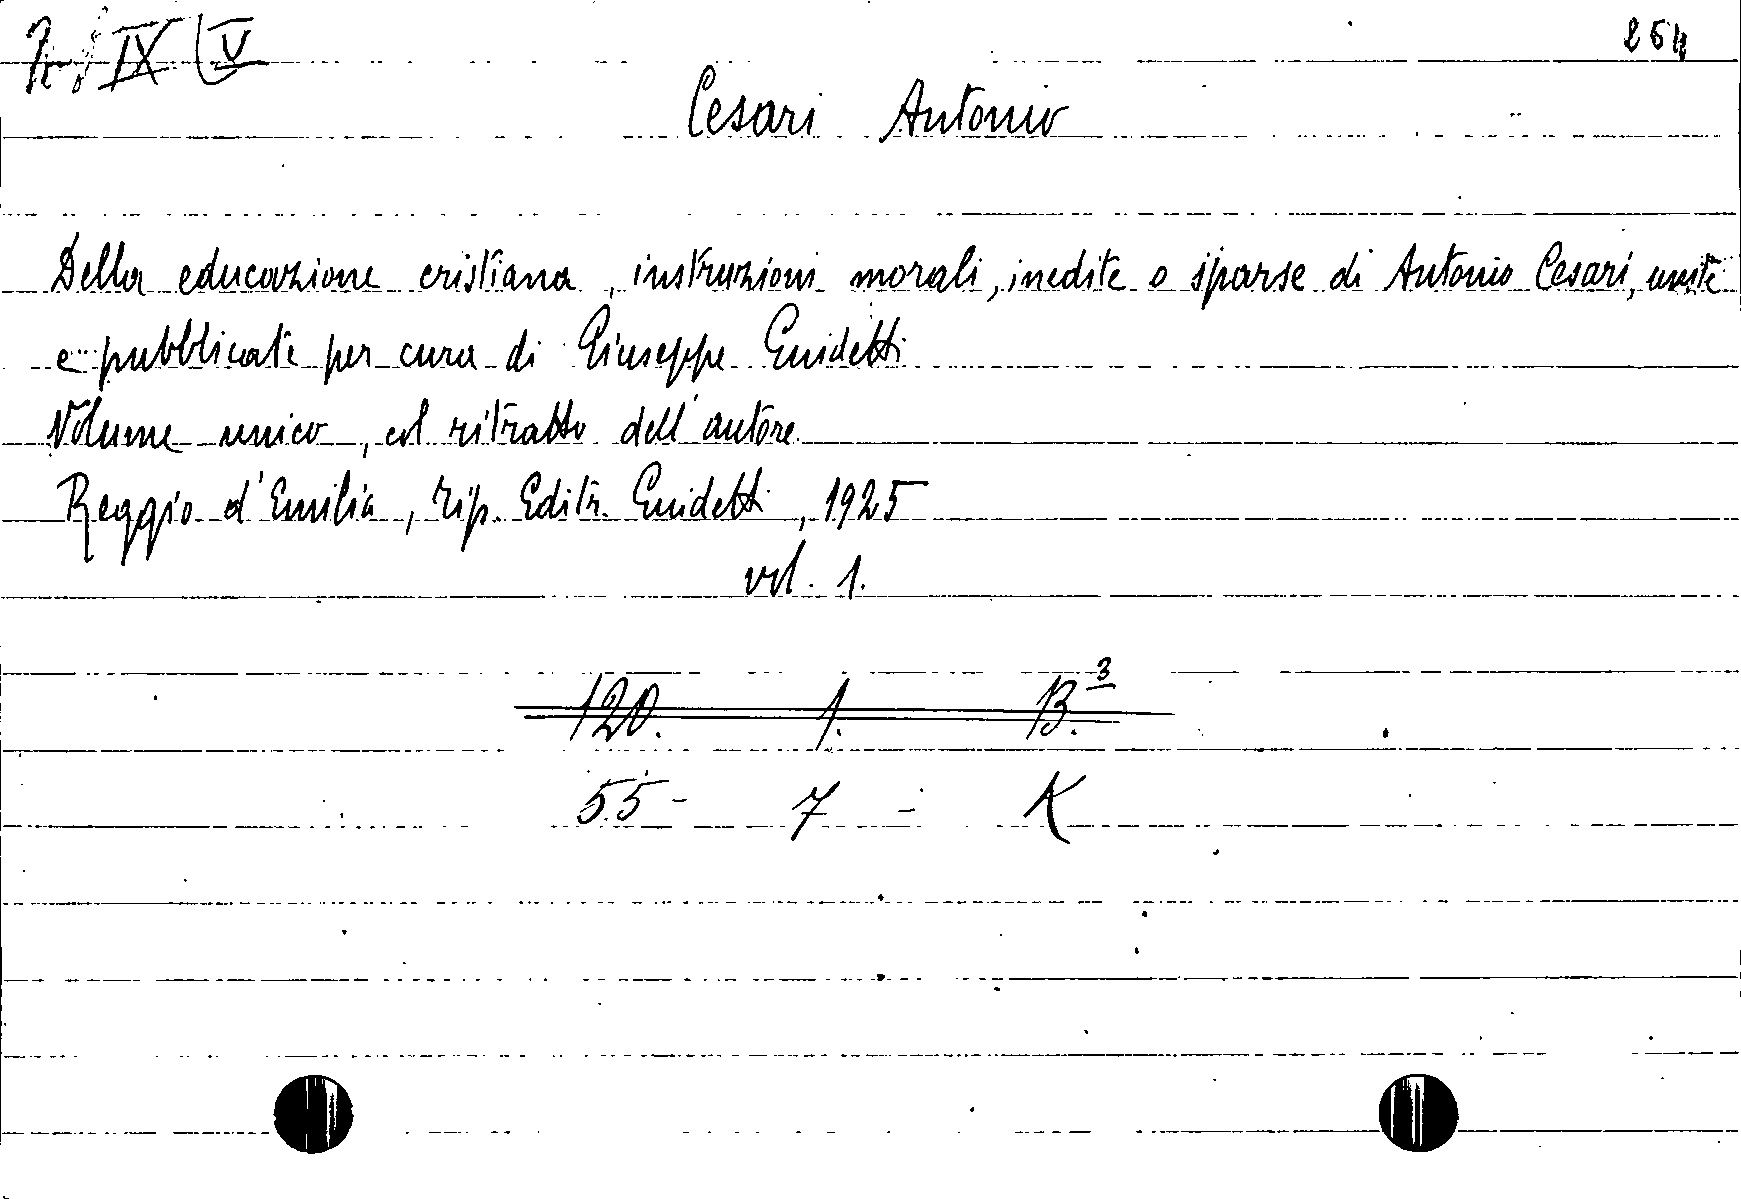 IX V
254
Cesari Antonio
Della educazione cristiana, instruzioni morali, inedite o sparse di Antonio Cesari, unite
e pubblicate per cura di Giuseppe Guidetti
Volume unico, col ritratto dell'autore
Reggio d'Emilia, Tip. Editr. Guidetti, 1925
vol. 1.
120. 1. B.3
55 - 7 - K